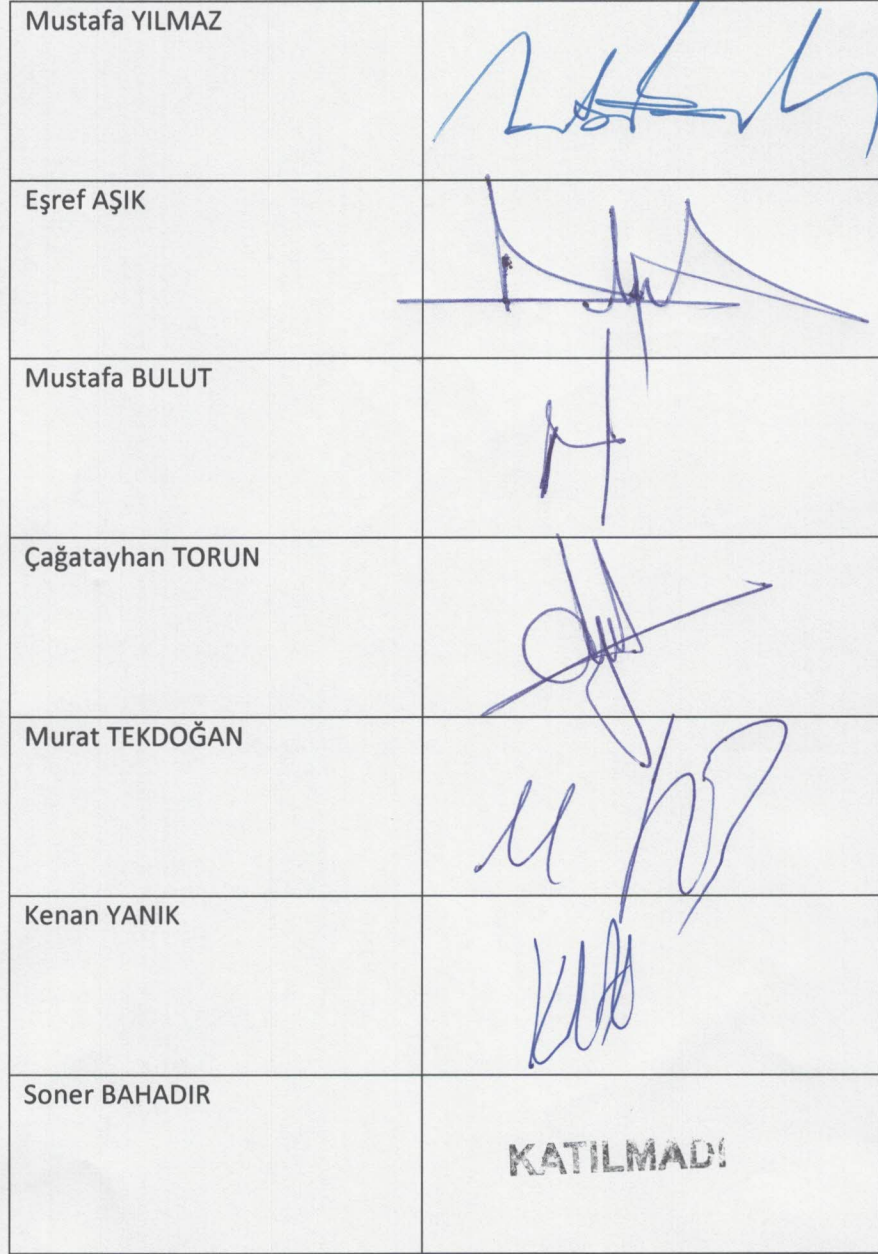 Mustafa YILMAZ
Eşref AŞIK
Mustafa BULUT
Çağatayhan TORUN
Murat TEKDOĞAN
Kenan YANIK
Soner BAHADIR
KATILMADI